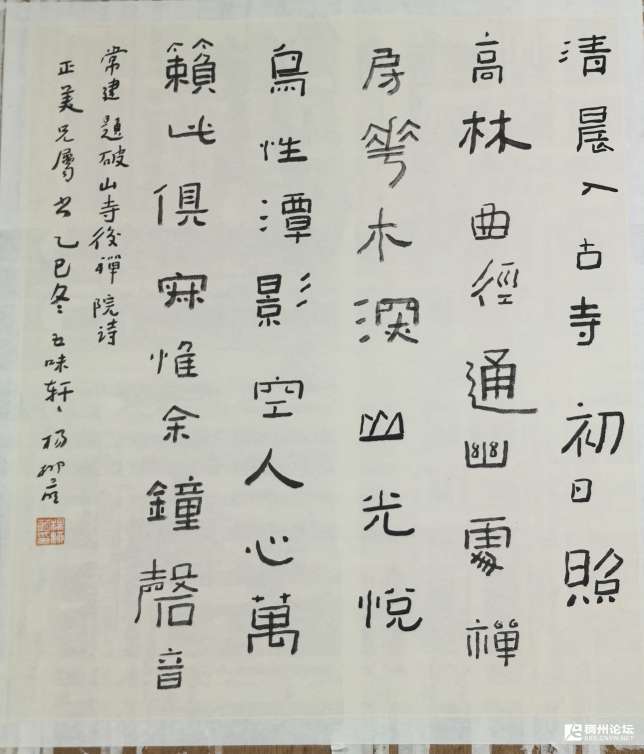 清晨入古寺初日照
高林曲徑通幽處禪
房華木深山光悅
鳥性潭影空人心萬
籟此俱寂惟余鐘磬音
常建題破山寺後禪院詩
正美兄屬书乙巳冬五味軒杨柳
稠州论坛
BBS.CNYW.NET